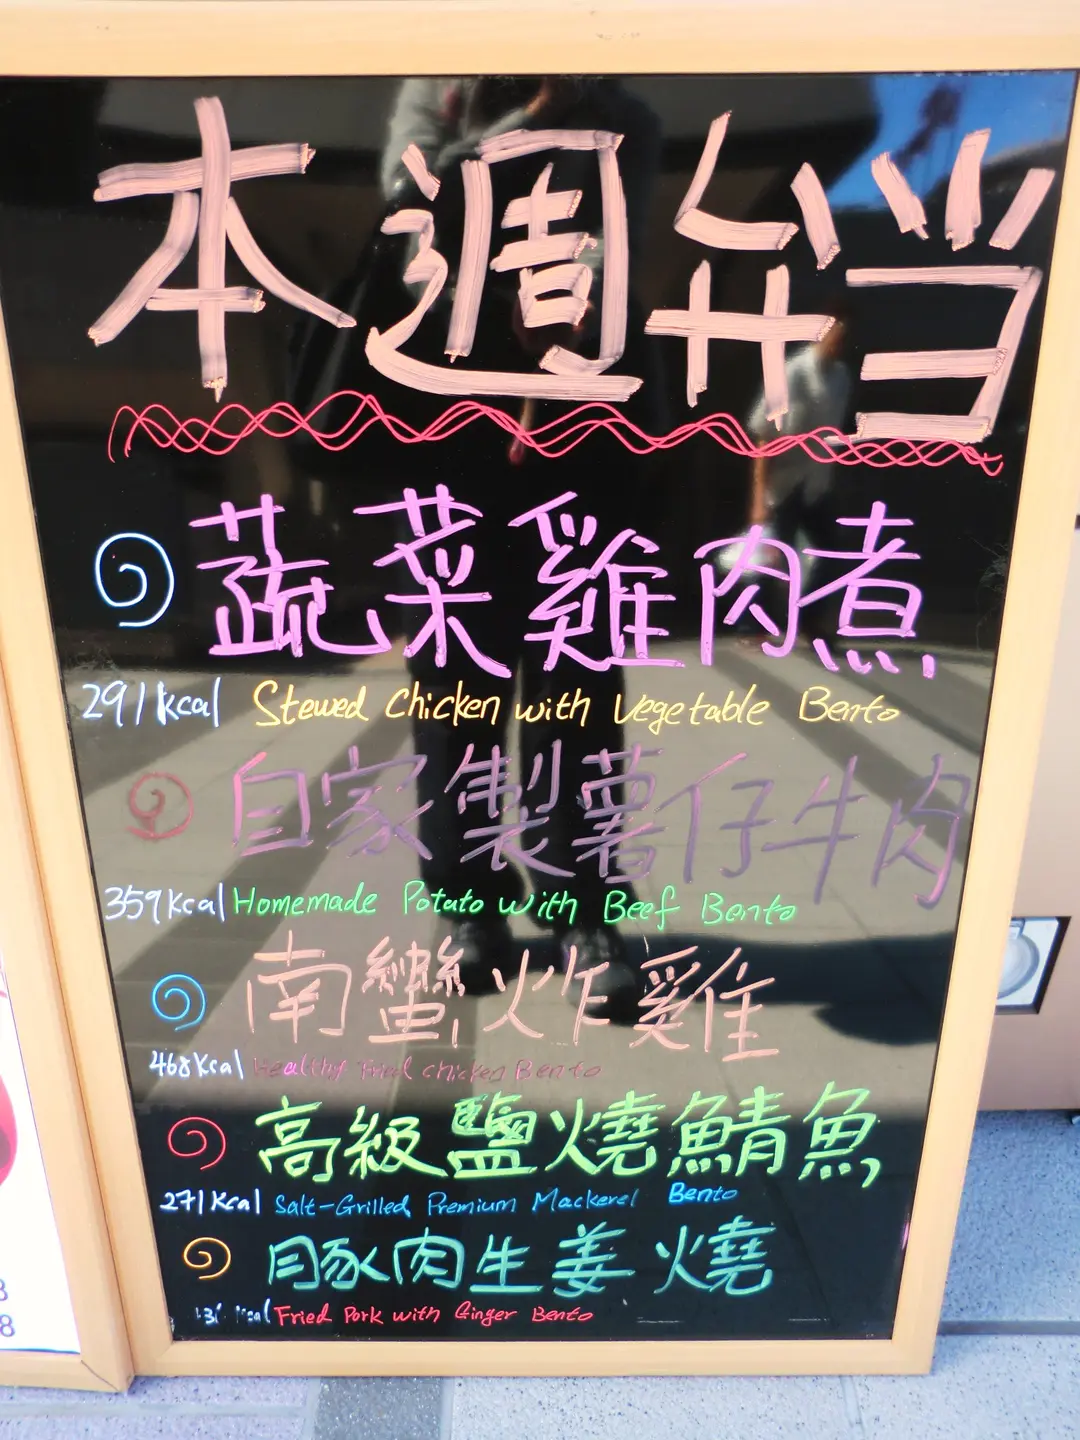 本週弁当
蔬菜雞肉煮
291kcal Stewed Chicken with Vegetable Bento
自家製薯仔牛肉
359kcal Homemade Potato with Beef Bento
南蠻炸雞
468kcal Healthy Fried chicken Bento
高級鹽燒鯖魚
271kcal Salt-Grilled Premium Mackerel Bento
豚肉生姜燒
Fried Pork with Ginger Bento
8